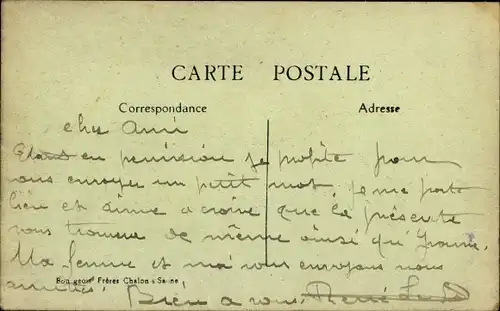 CARTE POSTALE
Correspondance
Adresse
cher Ami
Etant en permision je profite pour
vous envoyer un petit mot, je me porte
bien et aime a croire que la présente
vous trouve de même ainsi qu'Yvonne.
Ma femme et moi vous envoyons nous
Bourgeois Frères Chalon s Saône
amitiés. Bien a vous. René